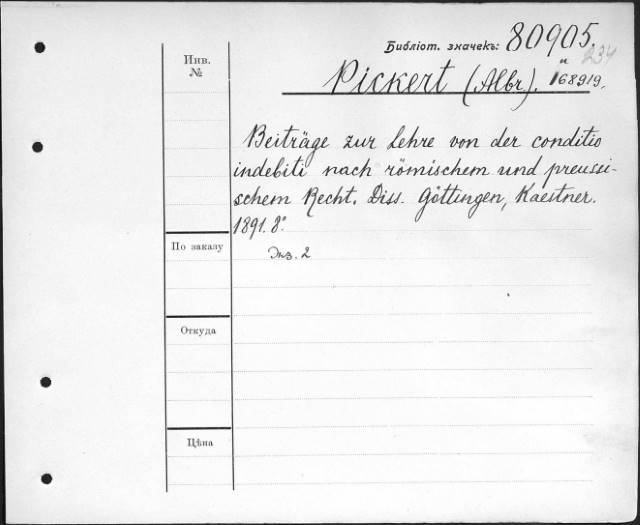 Библіот. значекъ: 80905.
234
Инв. №
и
Pickert (Albr). 168919.
Beiträge zur Lehre von der conditio
indebiti nach römischem und preussi-
schem Recht. Diss. Göttingen, Kaestner.
1891. 8°.
По заказу
Экз. 2
Откуда
Цѣна